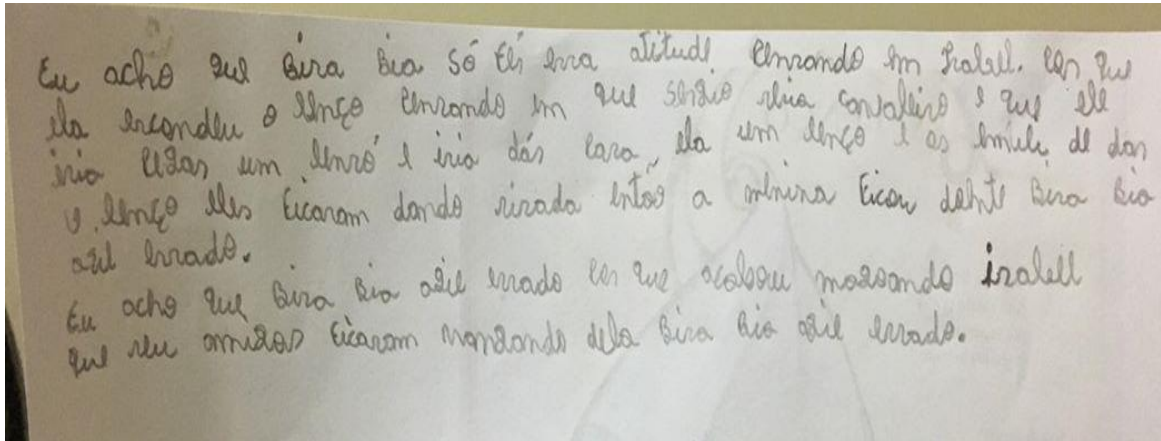 Eu acho que Bira Bia só fês erra atitude Penrando em Isabell. Por que
ela escondeu o lenço Penrando em que sérgio séria cavaleiro e que ele
iria Pegar um lenço e iria dár Para ela um lenço e as de dar
o lenço eles ficaram dando rirada então a menina ficou Bira Bia
agil errado.
Eu acho que Bira Bia agil errado Por que acabou magoando isabell
que seu amigos ficaram mangando dela Bira Bia agil errado.